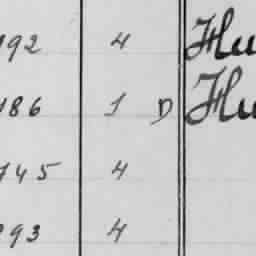 92 4 Жи
186 1 D Жи
745 4
93 4